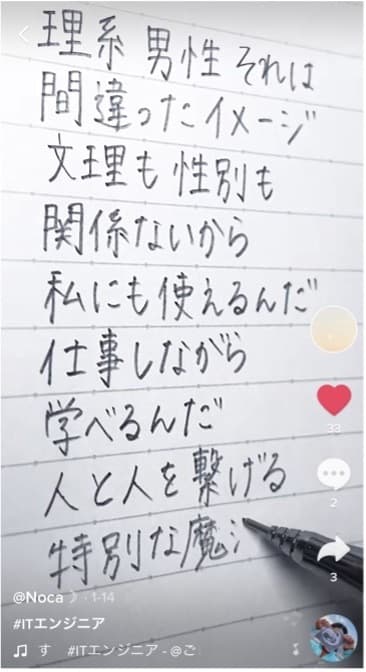 理系 男性 それは
間違ったイメージ
文理も 性別も
関係ないから
私にも使えるんだ
仕事しながら
学べるんだ
人と人を繋げる
特別な魔
33
2
3
@Noca ☽ · 1-14
#ITエンジニア
♫ す #ITエンジニア - @ご